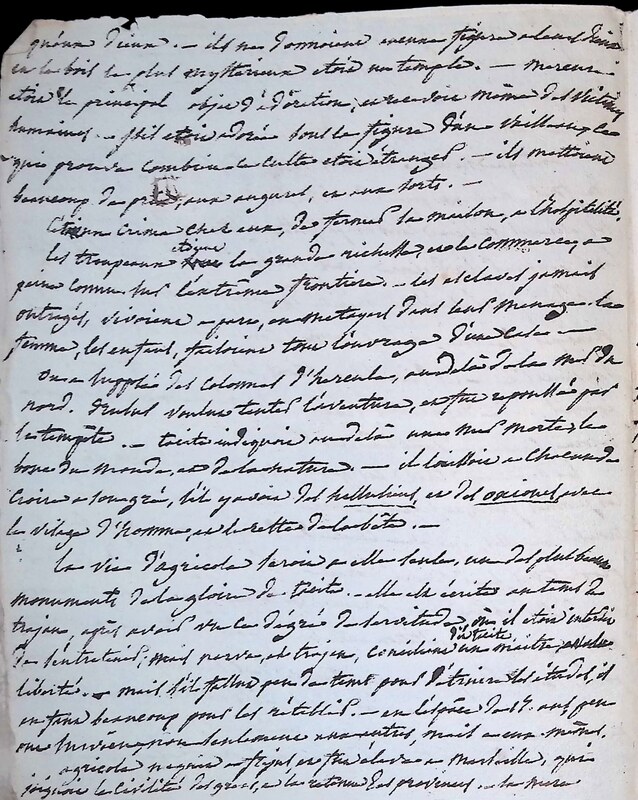 qu'aux dieux. — ils ne donnoient aucune figure a leurs dieux
et le bois le plus mystérieux etoit un temple. — mercure
etoit le principal objet d'adoration, et recevoit même des victimes
humaines. — isis etoit adorée sous la figure d'un vaisseau, ce
qui prouve combien ce culte etoit étranger. — ils mettoient
beaucoup de prix, aux augures, et aux sorts. —
un crime chez eux, de fermer sa maison, a l'hospitalité.
les troupeaux etoient la grande richesse, et le commerce, a
peine connu sur l'extrême frontiere. — les esclaves jamais
outragés, vivoient a part, en metayers dans leur menage. la
femme, les enfans, faisoient tout l'ouvrage d'une case. —
on a supposé des colonnes d'hercule, au delà de la mer du
nord. drusus voulut tenter l'aventure, et fut repoussé par
la tempête. — tacite indiquoit au delà une mer morte, la
borne du monde, et de la nature. — il laissoit a chacun de
croire a son gré, s'il y avoit des hellusiens, et des oxiones, avec
le visage d'homme, et le reste de la bête. —
la vie d'agricola seroit a elle seule, un des plus beaux
monuments de la gloire de tacite. — elle est écrite au tems de
trajan, après avoir vu ce dégré de servitude, où il etoit interdit
de s'entretenir; mais nerva, et trajan, concilient dit tacite, un maitre, et la
liberté. — mais s'il fallut peu de tems pour détruire les études, il
en faut beaucoup pour les rétablir. — en l'espace de 15. ans peu
ont survécu non seulement aux autres, mais a eux mêmes.
agricola naquit a fréjus, et fut élevé a marseille, qui
joignoit la civilité des grecs, a la retenue des provinces. — sa mere